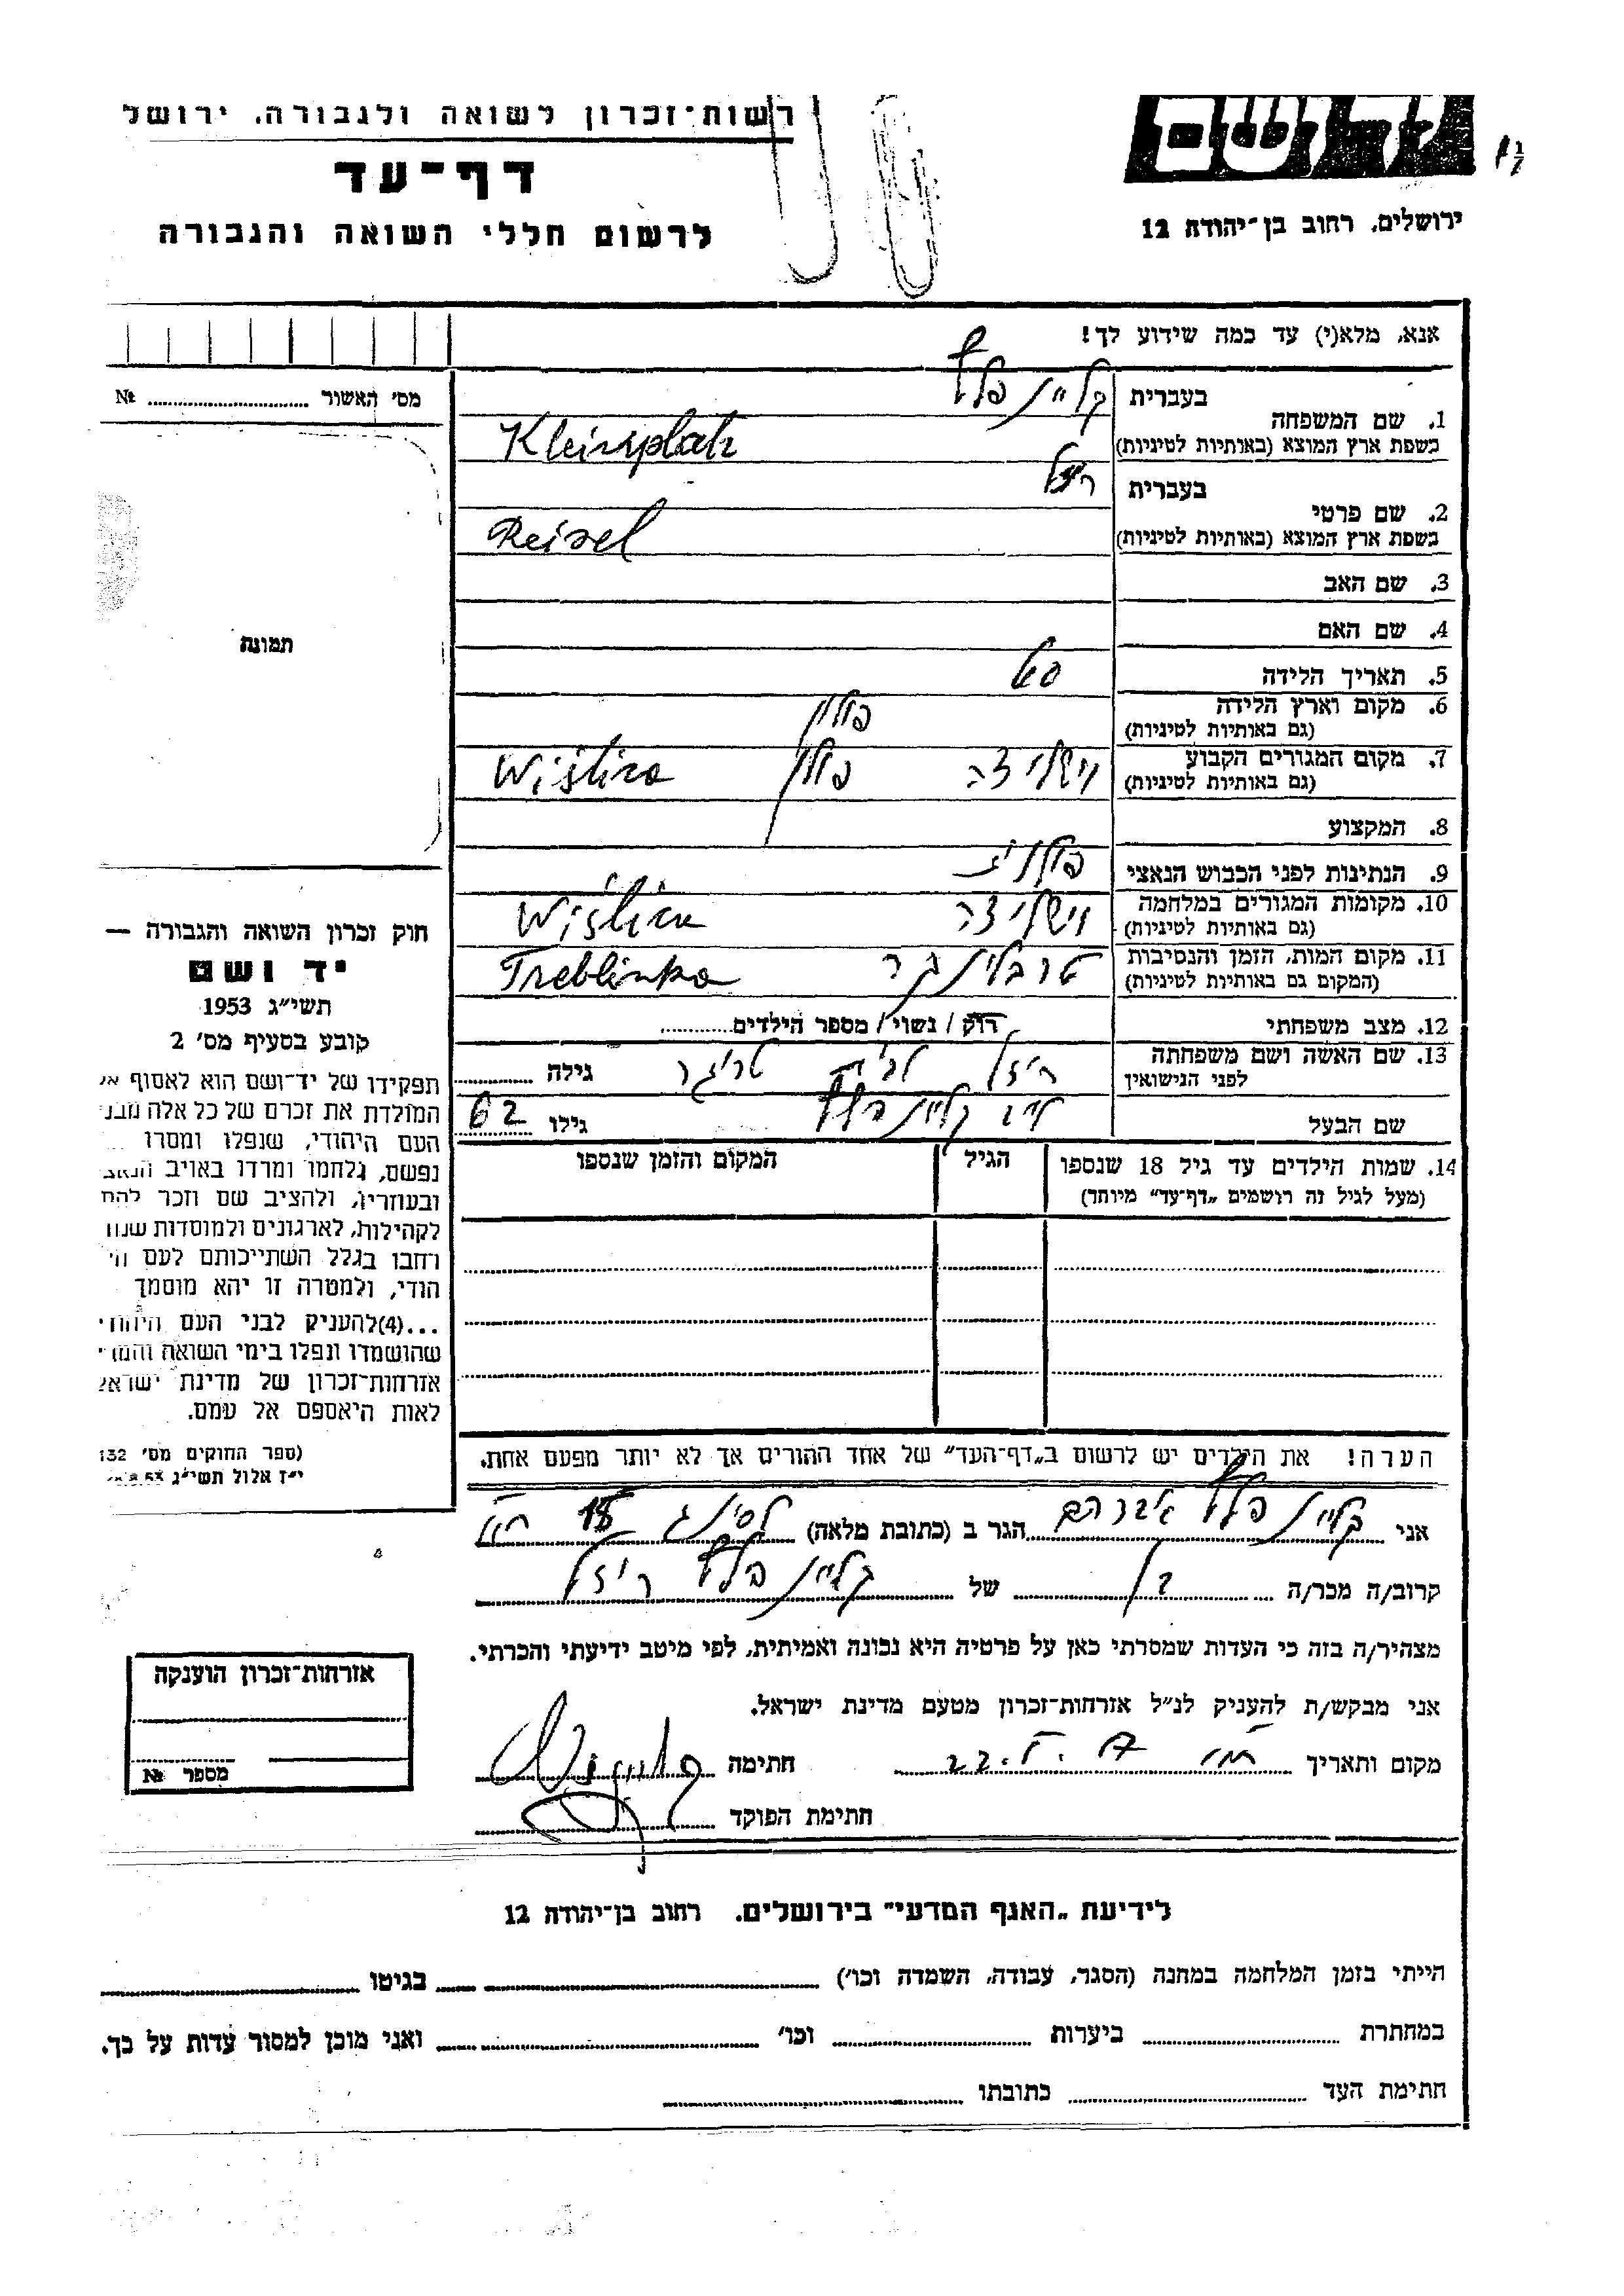 רשות־זכרון לשואה ולגבורה, ירושל
דף־עד
לרשום חללי השואה והגבורה
ירושלים, רחוב בן־יהודה 12
אנא, מלא(י) עד כמה שידוע לך!
מס׳ האשור № 
1. שם המשפחה
בעברית קליינפלץ
בשפת ארץ המוצא (באותיות לטיניות) Kleinplatz
2. שם פרטי
בעברית ריזל
בשפת ארץ המוצא (באותיות לטיניות) Reisel
3. שם האב
4. שם האם
תמונה
5. תאריך הלידה 60
6. מקום וארץ הלידה פולין
(גם באותיות לטיניות)
7. מקום המגורים הקבוע וישליצה פולין Wiślica
(גם באותיות לטיניות)
8. המקצוע
9. הנתינות לפני הכבוש הנאצי
10. מקומות המגורים במלחמה וישליצה Wiślica
(גם באותיות לטיניות)
11. מקום המות, הזמן והנסיבות טרבלינקה Treblinka
(המקום גם באותיות לטיניות)
12. מצב משפחתי רוק / נשוי / מספר הילדים
13. שם האשה ושם משפחתה ריזל לבית גילה
לפני הנישואין
שם הבעל קליינפלץ גילו 62
14. שמות הילדים עד גיל 18 שנספו הגיל המקום והזמן שנספו
(מעל לגיל זה רושמים „דף־עד״ מיוחד)
חוק זכרון השואה והגבורה —
יד ושם
תשי״ג 1953
קובע בסעיף מס׳ 2
תפקידו של יד־ושם הוא לאסוף אל
המולדת את זכרם של כל אלה מבני
העם היהודי, שנפלו ומסרו
נפשם, נלחמו ומרדו באויב הנאצ
ובעוזריו, ולהציב שם וזכר להם
לקהילות, לארגונים ולמוסדות שנח
רחבו בגלל השתייכותם לעם הי
הודי, ולמטרה זו יהא מוסמך
...(4)להעניק לבני העם היהודי
שהושמדו ונפלו בימי השואה והמרי
אזרחות־זכרון של מדינת ישראל
לאות היאספם אל עמם.
(ספר החוקים מס׳ 132
י״ז אלול תשי״ג 28.8.53
הערה! את הילדים יש לרשום ב„דף־העד״ של אחד ההורים אך לא יותר מפעם אחת.
אני קליינפלץ אברהם הגר ב (כתובת מלאה) 18
קרוב/ה מכר/ה בן של קליינפלץ ריזל
מצהיר/ה בזה כי העדות שמסרתי כאן על פרטיה היא נכונה ואמיתית, לפי מיטב ידיעתי והכרתי.
אני מבקש/ת להעניק לנ״ל אזרחות־זכרון מטעם מדינת ישראל.
מקום ותאריך חתימה
חתימת הפוקד
אזרחות־זכרון הוענקה
מספר №
לידיעת „האגף המדעי״ בירושלים, רחוב בן־יהודה 12
הייתי בזמן המלחמה במחנה (הסגר, עבודה, השמדה וכו׳) בגיטו
במחתרת ביערות וכו׳ ואני מוכן למסור עדות על כך.
חתימת העד כתובתו